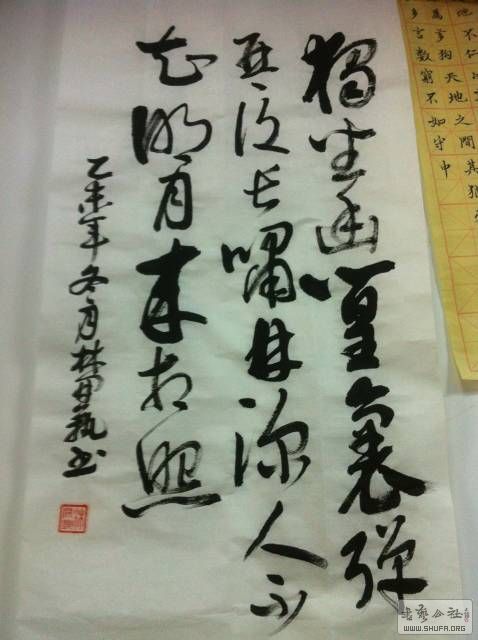 地不仁以
為芻狗天地之間其猶
多言數窮不如守中
獨坐幽篁裏彈
琴復長嘯林深人不
知明月來相照
乙未年冬月林書
书艺公社
WWW.SHUFA.ORG